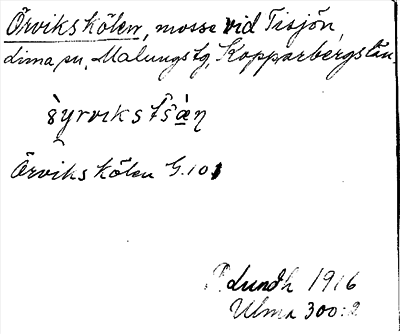 Örvikskölen, mosse vid Tisjön,
Lima sn, Malungs tg, Kopparbergs län.
Örvikskölen G. 101
P. Lundh 1916
Ulma 300:2